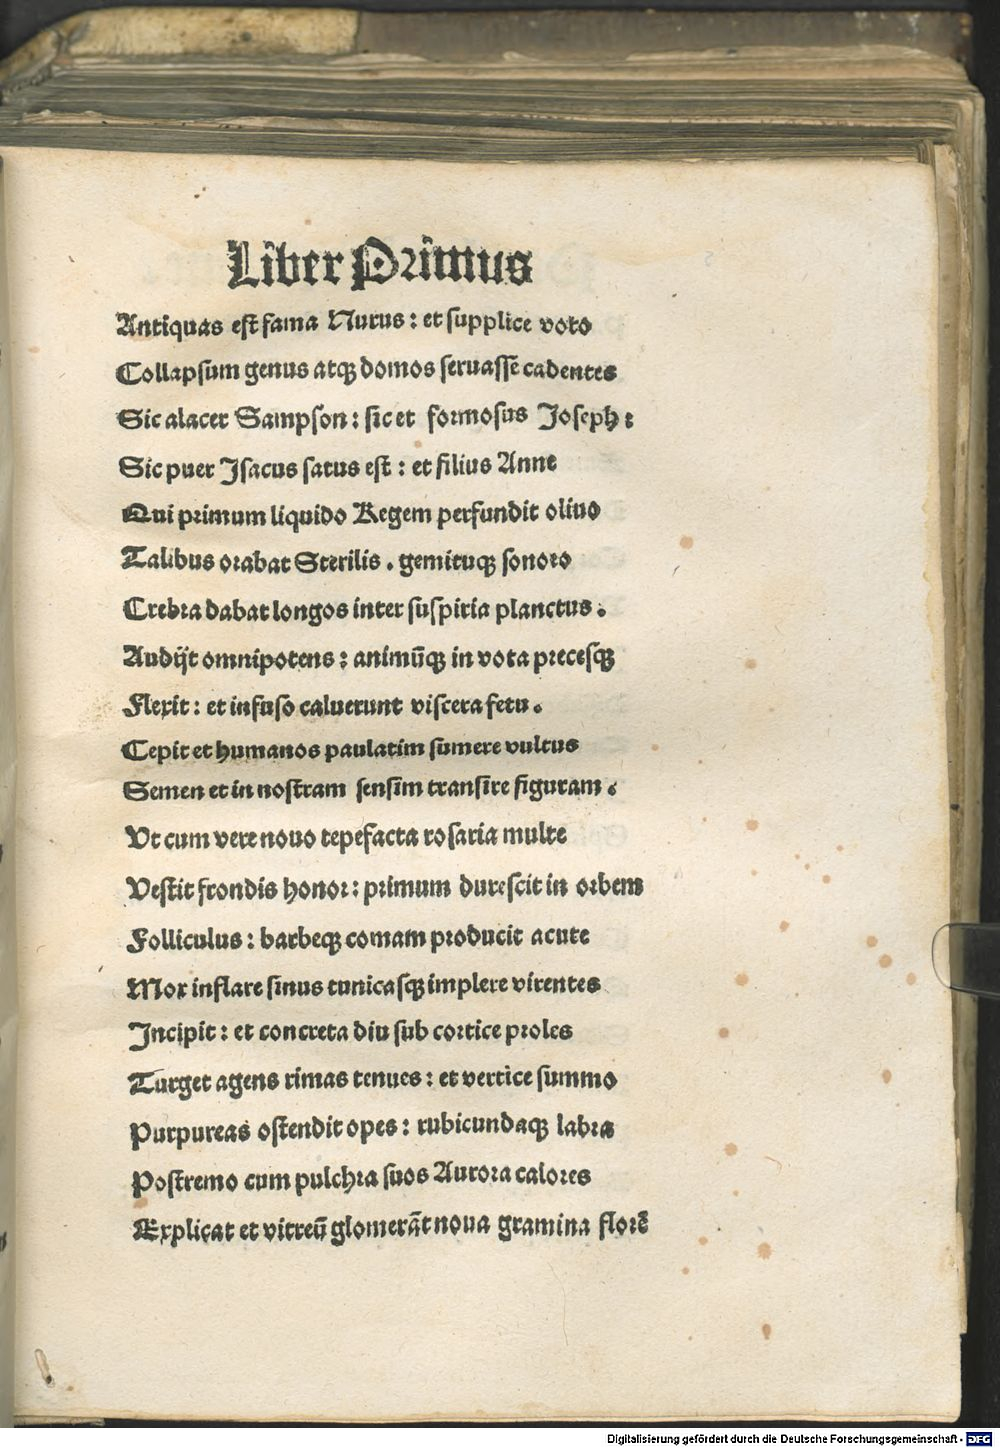 Liber Primus
Antiquas est fama Nurus : et supplice voto
Collapsum genus atqꝫ domos seruasse cadentes
Sic alacer Sampson : sic et formosus Joseph :
Sic puer Jsacus satus est : et filius Anne
Qui primum liquido Regem perfundit oliuo
Talibus orabat Sterilis . gemituqꝫ sonoro
Crebra dabat longos inter suspiria planctus .
Audijt omnipotens : animūqꝫ in vota precesqꝫ
Flexit : et infuso caluerunt viscera fetu .
Cepit et humanos paulatim sumere vultus
Semen et in nostram sensim transire figuram .
Vt cum vere nouo tepefacta rosaria multe
Vestit frondis honor : primum durescit in orbem
Folliculus : barbeqꝫ comam producit acute
Mox inflare sinus tunicasqꝫ implere virentes
Jncipit : et concreta diu sub cortice proles
Turget agens rimas tenues : et vertice summo
Purpureas ostendit opes : rubicundaqꝫ labra
Postremo cum pulchra suos Aurora calores
Explicat et vitreū glomerāt noua gramina florē
Digitalisierung gefördert durch die Deutsche Forschungsgemeinschaft - DFG